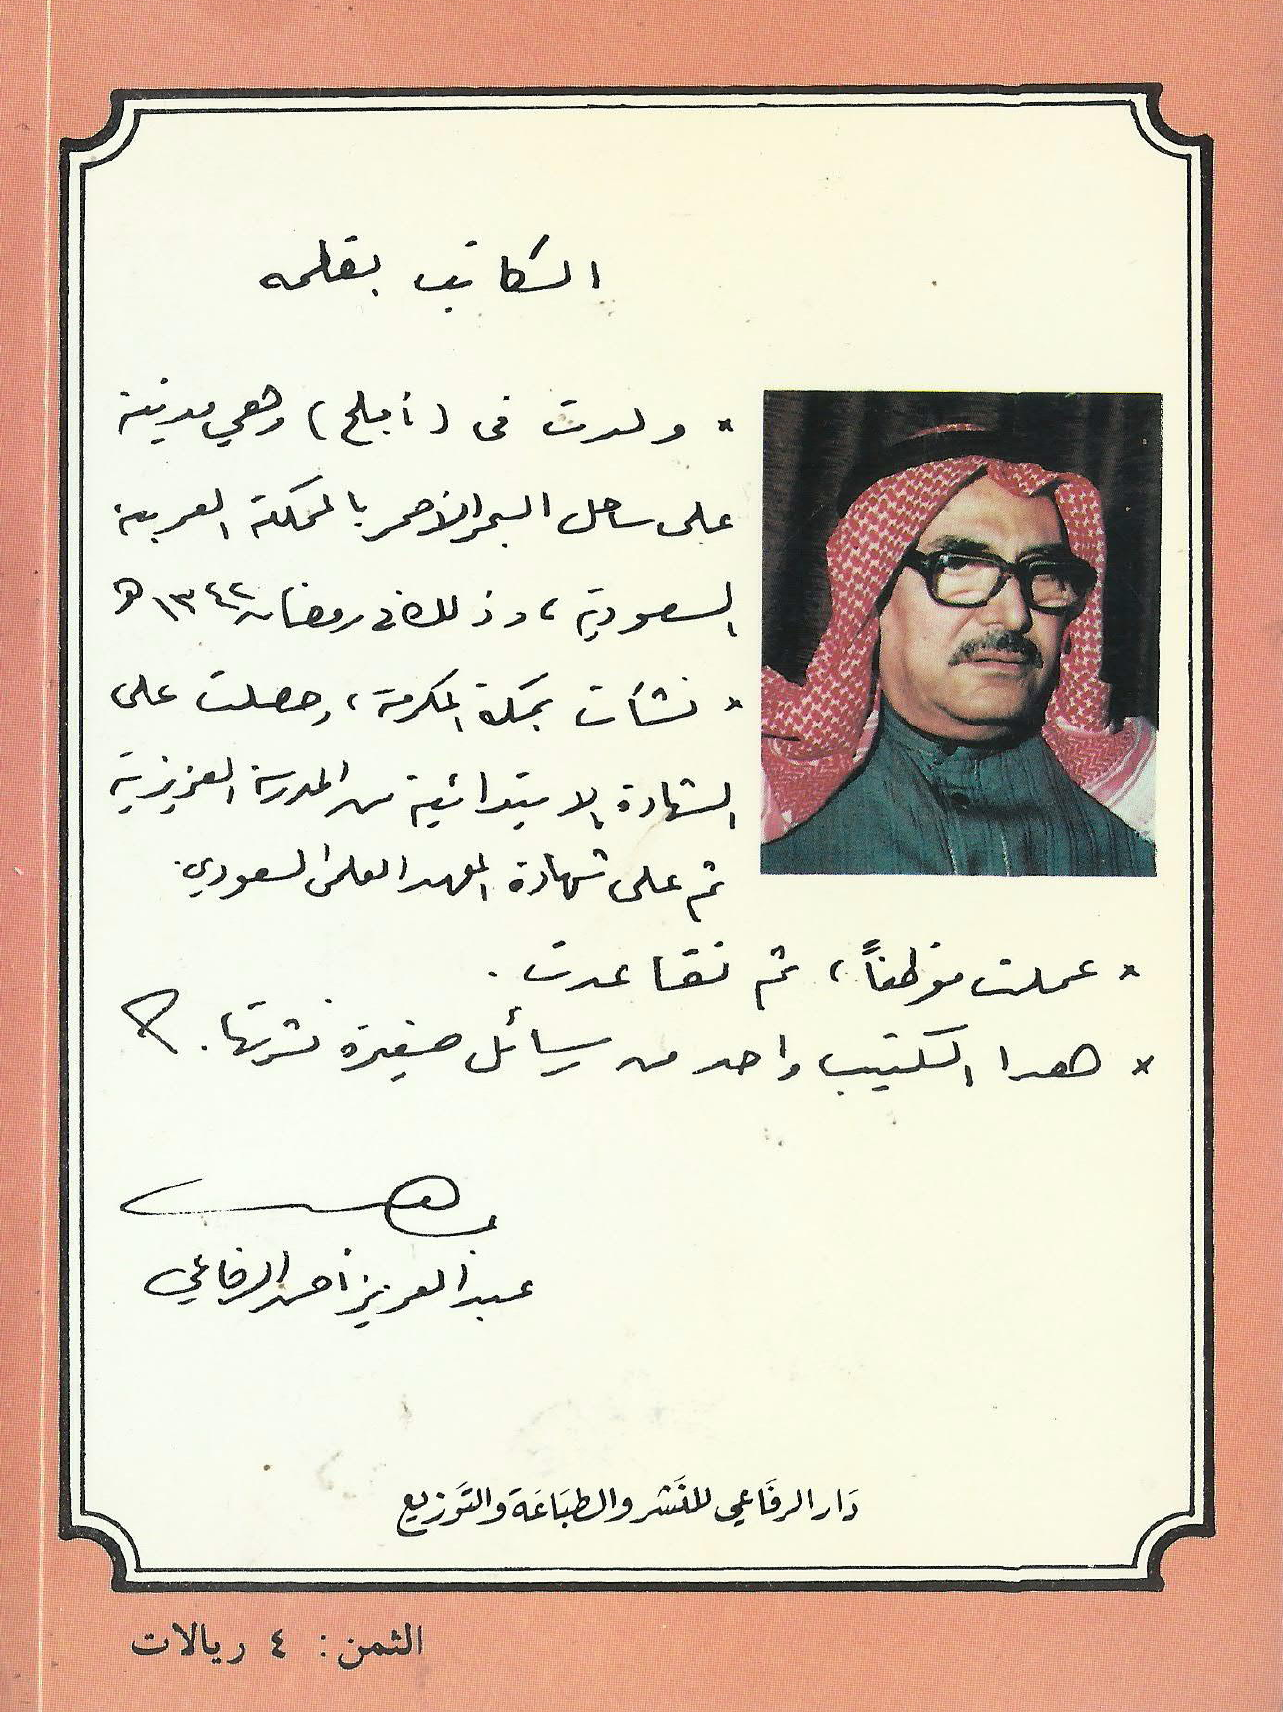 الكاتب بقلمه
* ولدت في (أملج) وهي مدينة
على ساحل البحر الأحمر بالمملكة العربية
السعودية، وذلك في رمضان ١٣٤٢ هـ
* نشأت بمكة المكرمة، وحصلت على
الشهادة الابتدائية من المدرسة العزيزية
ثم على شهادة المعهد العلمي السعودي.
* عملت موظفاً، ثم تقاعدت.
* هذا الكتيب واحد من رسائل صغيرة نشرتها.
عبدالعزيز أحمد الرفاعي
دَار الرفَاعي للنَشر والطبَاعَة والتَوزيع
الثمن: ٤ ريالات